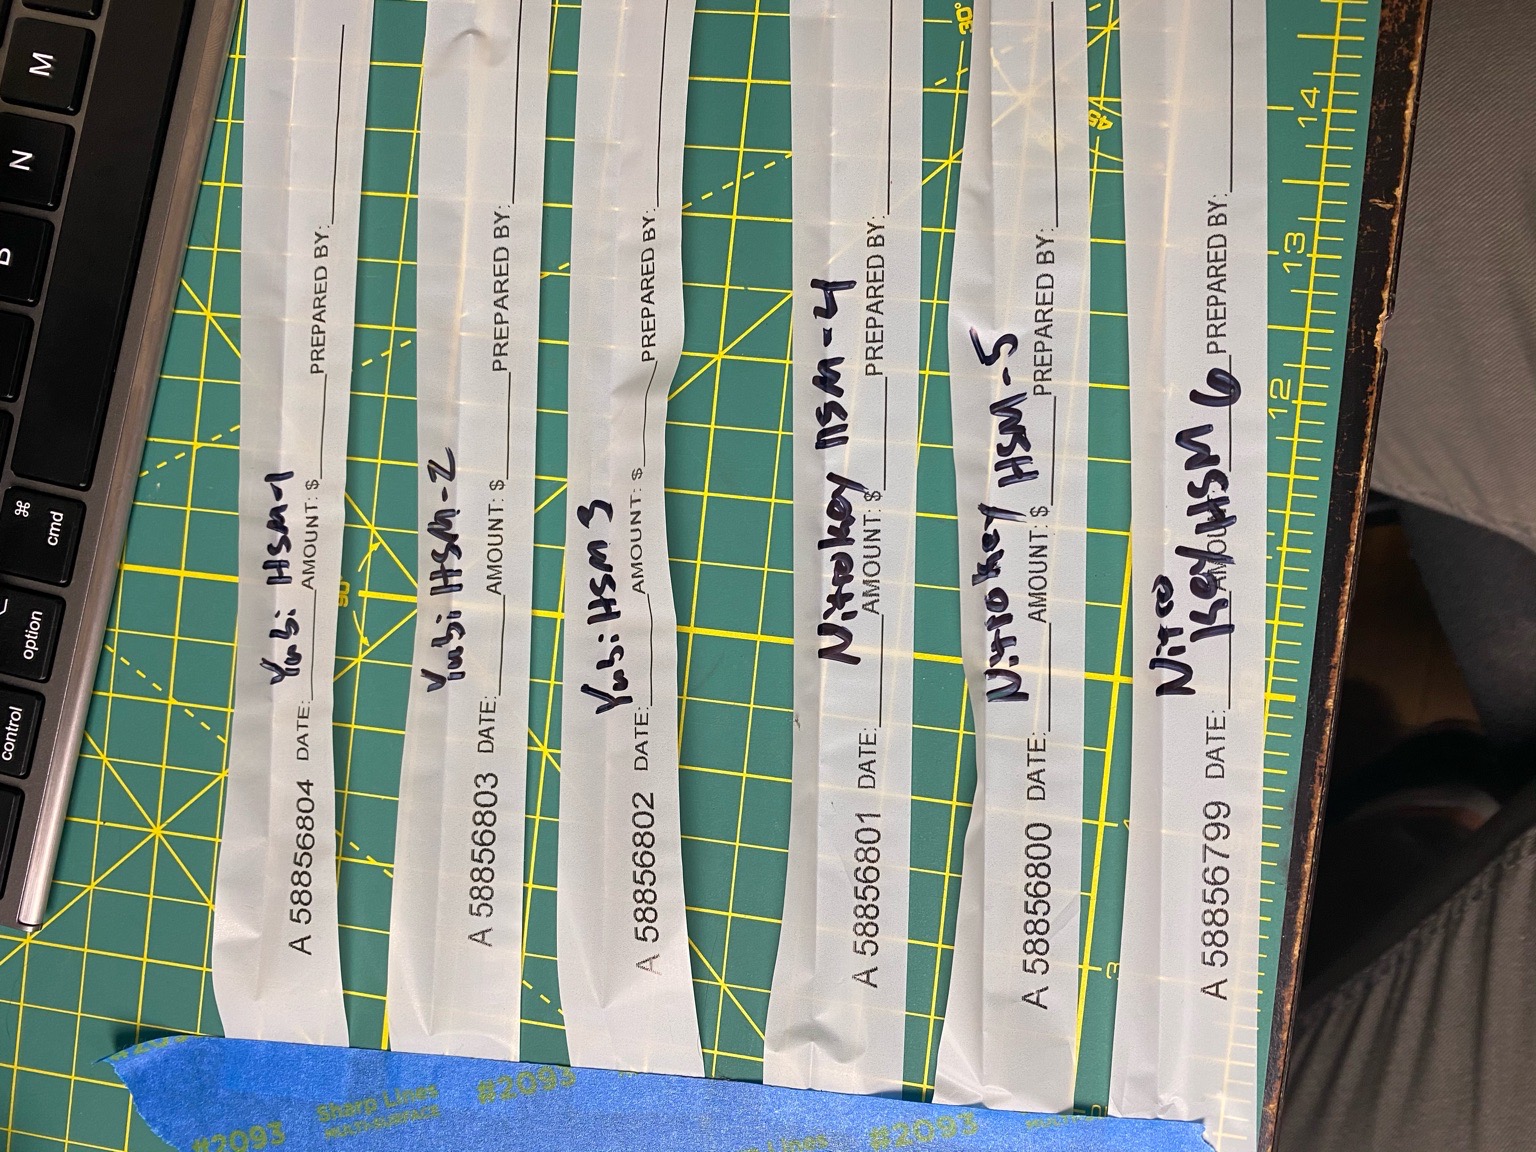 B
N
M
control
option
⌘
cmd
#2093
Yubi HSM-1
A 58856804 DATE: AMOUNT: $ PREPARED BY:
90°
Yubi HSM-2
A 58856803 DATE: AMOUNT: $ PREPARED BY:
#2093
Yubi HSM 3
A 58856802 DATE: AMOUNT: $ PREPARED BY:
Nitrokey HSM-4
A 58856801 DATE: AMOUNT: $ PREPARED BY:
#2093
30°
Nitrokey HSM-5
A 58856800 DATE: AMOUNT: $ PREPARED BY:
3
45°
Nitro
Key HSM 6
A 58856799 DATE: PREPARED BY:
12 13 14